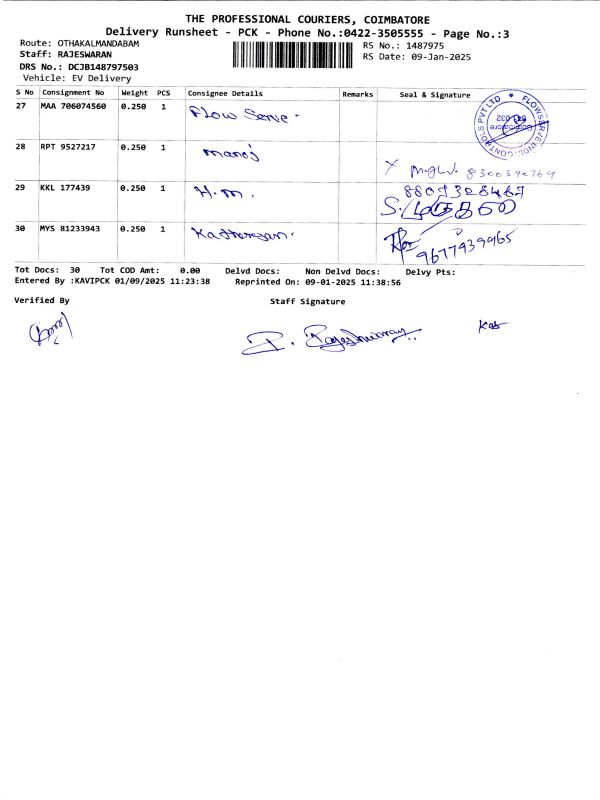 THE PROFESSIONAL COURIERS, COIMBATORE
Delivery Runsheet - PCK - Phone No.:0422-3505555 - Page No.:3
Route: OTHAKALMANDABAM
RS No.: 1487975
Staff: RAJESWARAN
RS Date: 09-Jan-2025
DRS No.: DCJB148797503
Vehicle: EV Delivery
S No Consignment No Weight PCS Consignee Details Remarks Seal & Signature
27 MAA 706074560 0.250 1 Flow Serve -
FLOWSERVE INDL.CONTROLS PVT LTD ★
Coimbatore
28 RPT 9527217 0.250 1 Manoj
X 8300390769
29 KKL 177439 0.250 1 H.M.
30 MYS 81233943 0.250 1
9677939965
Tot Docs: 30 Tot COD Amt: 0.00 Delvd Docs: Non Delvd Docs: Delvy Pts:
Entered By :KAVIPCK 01/09/2025 11:23:38 Reprinted On: 09-01-2025 11:38:56
Verified By Staff Signature